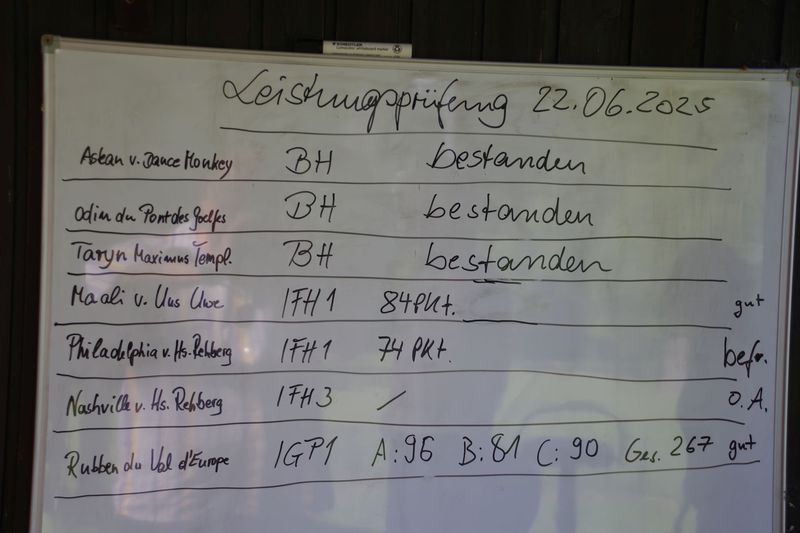 STAEDTLER
Lumocolor whiteboard marker
Leistungsprüfung 22.06.2025
Askan v. Dance Monkey BH bestanden
Odin du Pont des Goelfes BH bestanden
Taryn Maximus Templ. BH bestanden
Maali v. Uns Uwe IFH1 84 PKt. gut
Philadelphia v. Hs. Rehberg IFH1 74 PKt. befr.
Nashville v. Hs. Rehberg IFH3 / o.A.
Rubben du Val d'Europe IGP1 A:96 B:81 C:90 Ges. 267 gut